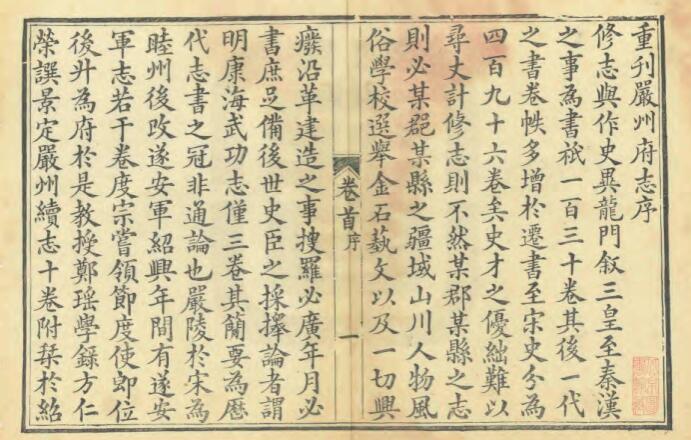 重刊嚴州府志序
修志與作史異龍門叙三皇至秦漢
之事為書祇一百三十卷其後一代
之書卷帙多增於遷書至宋史分為
四百九十六卷矣史才之優絀難以
尋丈計修志則不然某郡某縣之志
則必某郡某縣之疆域山川人物風
俗學校選舉金石藝文以及一切興
卷首 序
一
癈沿革建造之事搜羅必廣年月必
書庶足備後世史臣之採擇論者謂
明康海武功志僅三卷其簡要為歴
代志書之冠非通論也嚴陵於宋為
睦州後改遂安軍紹興年間有遂安
軍志若干卷度宗嘗領節度使卽位
後升為府於是教授鄭瑶學録方仁
榮譔景定嚴州續志十卷附栞於紹